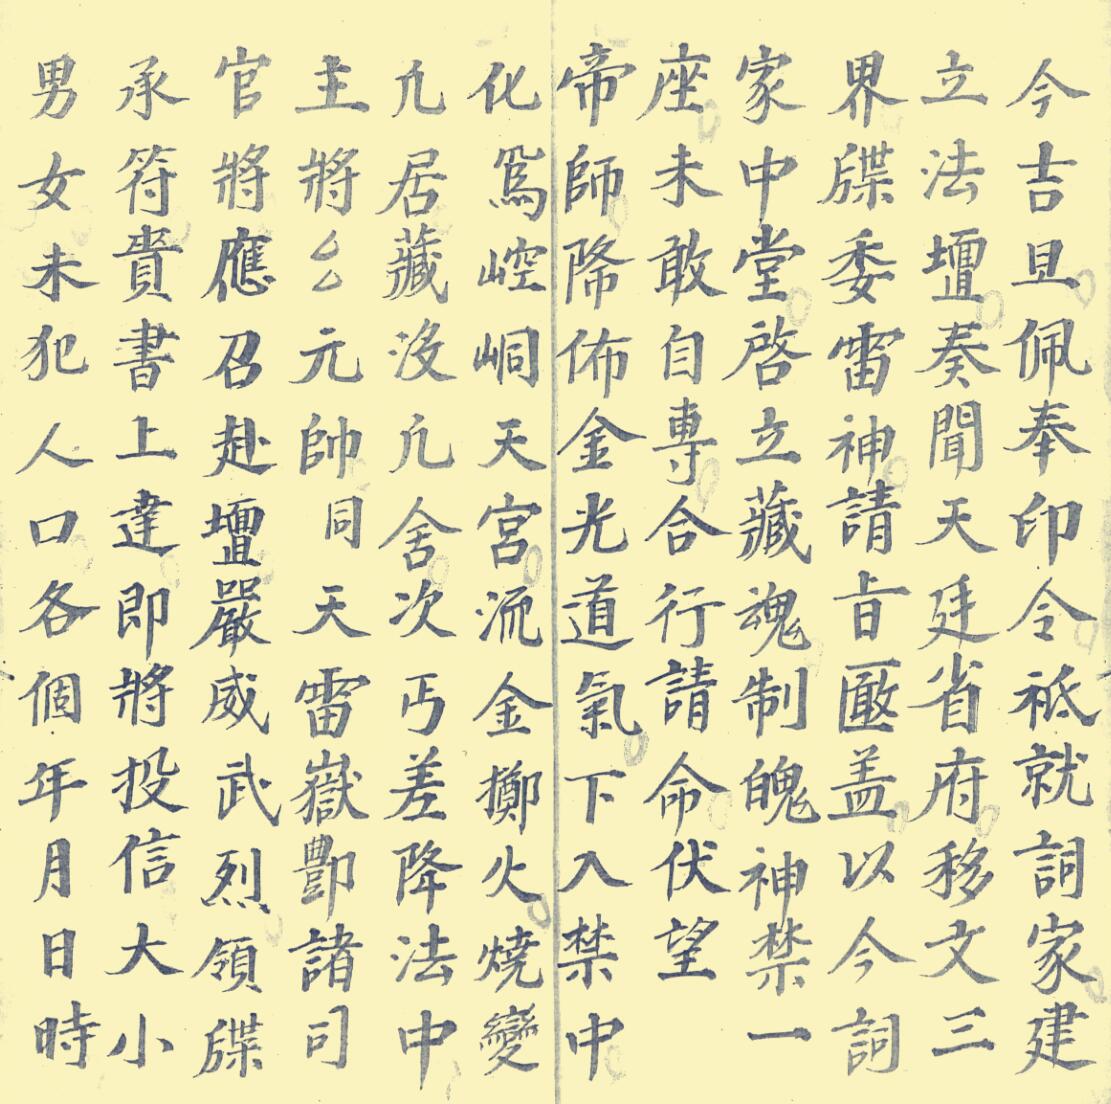 今吉旦佩奉印令祇就詞家建
立法壇奏聞天廷省府移文三
界牒委雷神請旨匭盖以今詞
家中堂啓立藏魂制魄神禁一
座未敢自專合行請命伏望
帝師降佈金光道氣下入禁中
化爲崆峒天宮流金擲火燒變
凢居藏沒凢舍次丐差降法中
主將厶厶元帥同天雷嶽酆諸司
官將應召赴壇嚴威武烈領牒
承符賫書上達即將投信大小
男女未犯人口各個年月日時